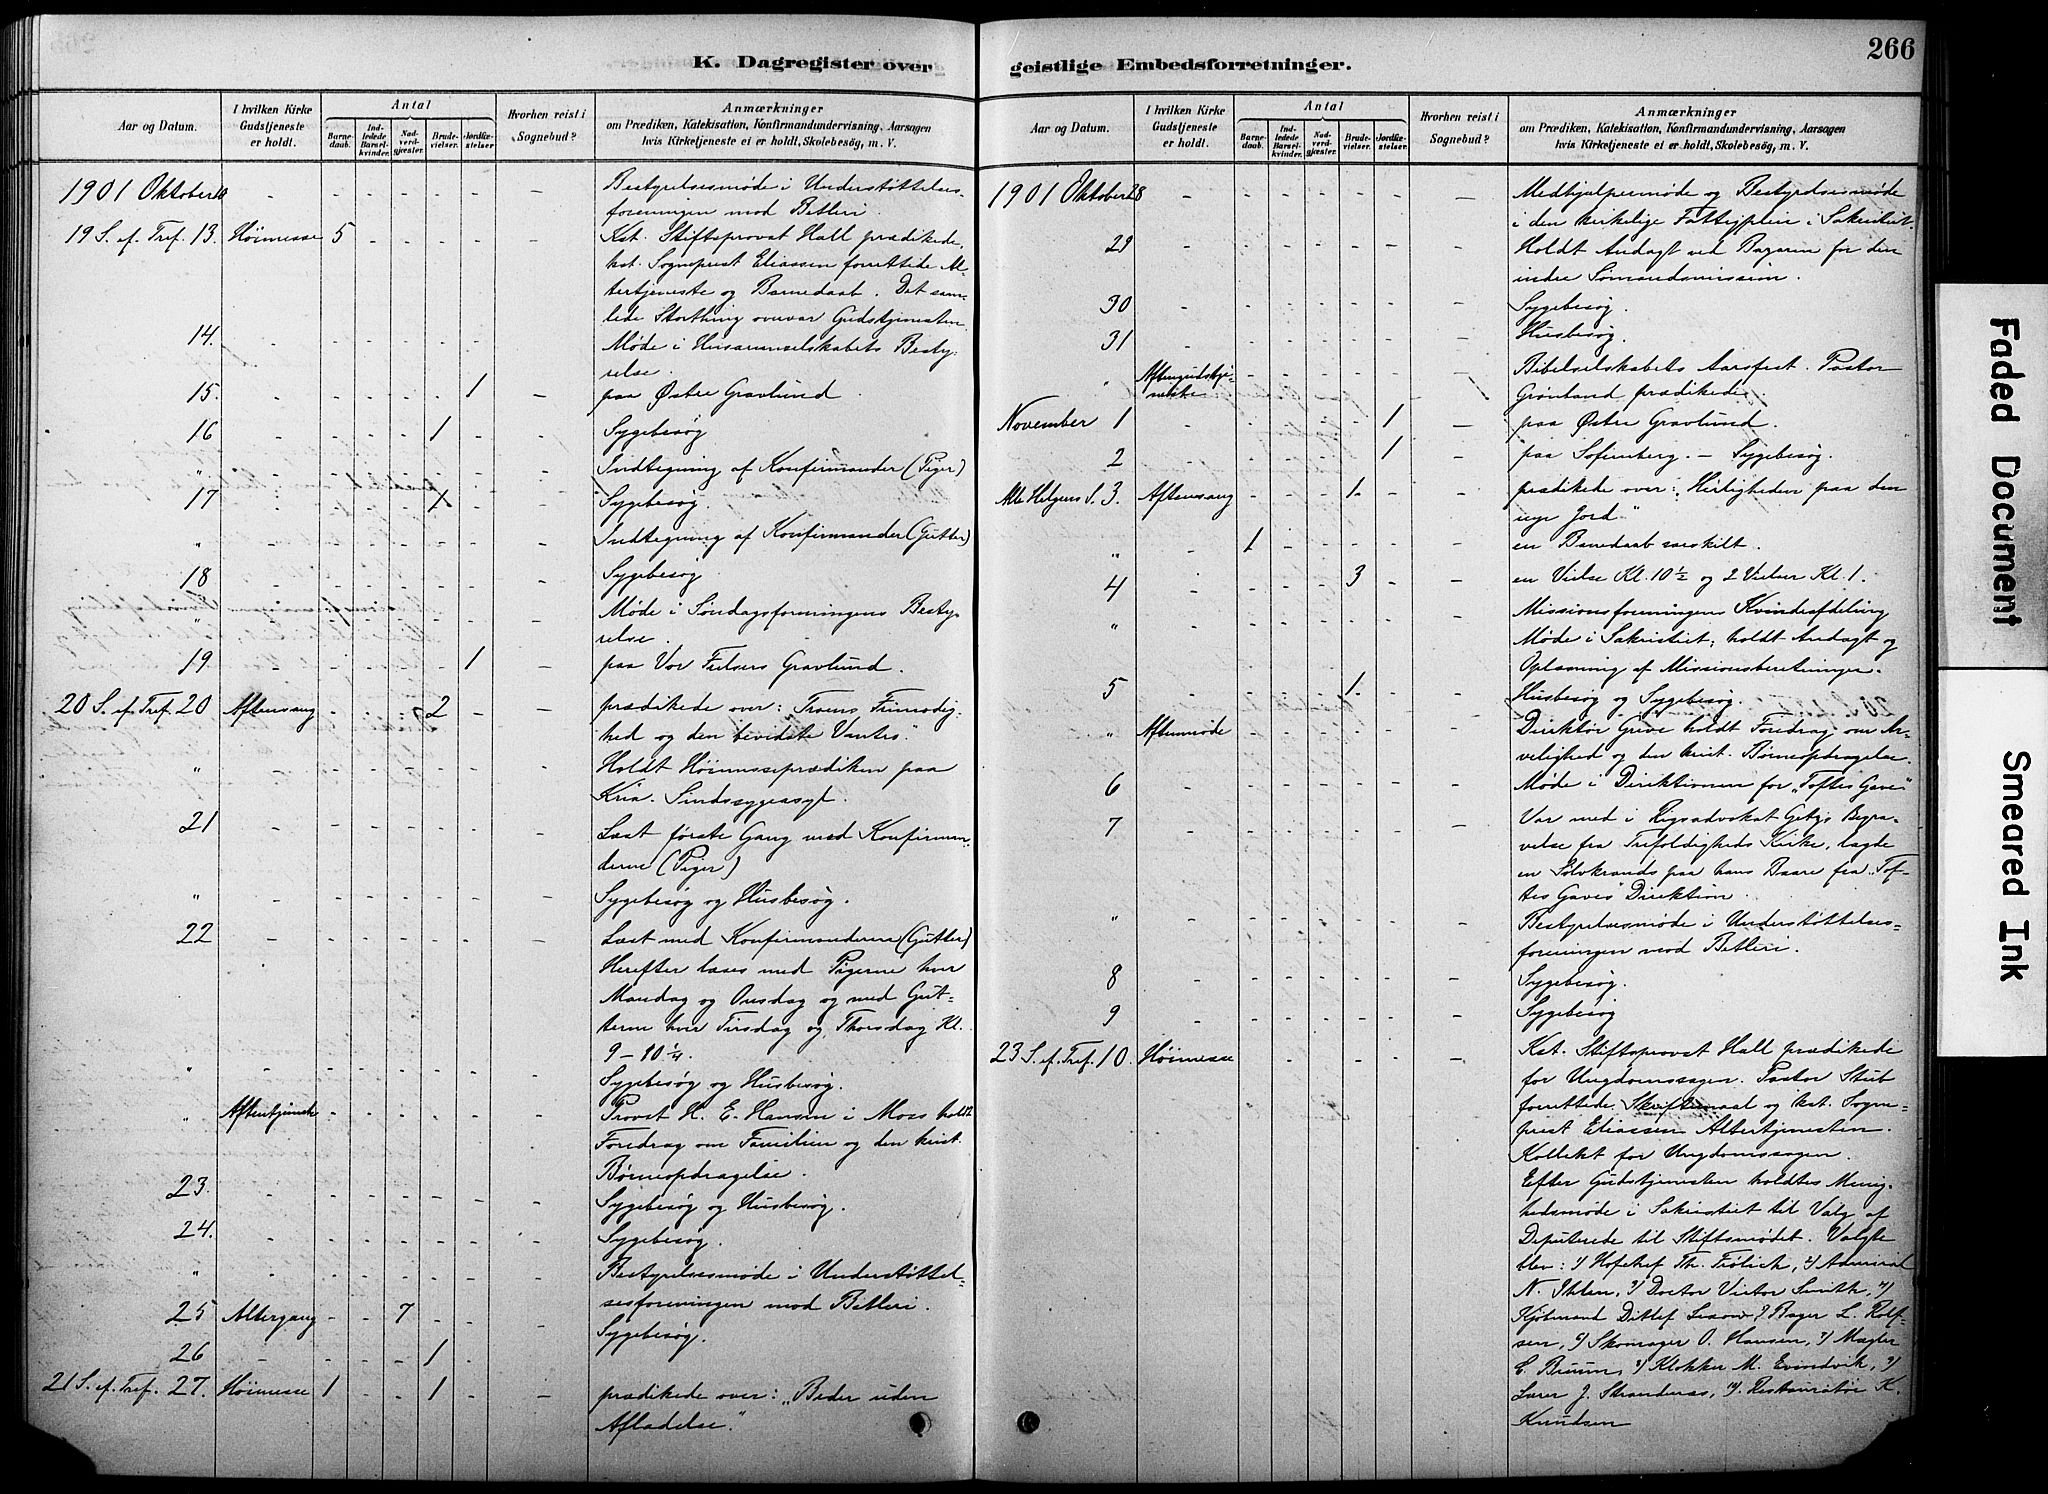 266
K. Dagregister over geistlige Embedsforretninger.
Aar og Datum.
I hvilken Kirke Gudstjeneste er holdt.
Antal
Barnedaab.
Indledede Barselkvinder.
Nadverdgjæster.
Brudevielser.
Jordfæstelser
Hvorhen reist i Sognebud?
Anmærkninger
om Prædiken, Katekisation, Konfirmandundervisning, Aarsagen
hvis Kirketjeneste ei er holdt, Skolebesøg, m. V.
1901 Oktober 10 - - - - - - - Bestyrelsesmøde i Understøttelses-
foreningen mod Betleri.
19 S. ef. Tref. 13. Høimesse 5 - - - - - Kst. Stiftsprovst Hall prædikede,
kst. Sogneprest Eliassen forrettede Al-
tertjeneste og Barnedaab. Det sam-
lede Storthing overvar Gudstjenesten.
14. - - - - - - - Møde i Husarmeselskabets Besty-
relse.
15. - - - - - 1 - paa Østre Gravlund.
16 - - - - 1 - - Sygebesøg
" - - - - - - - Indtegning af Konfirmander (Piger)
17 - - - - 1 - - Sygebesøg.
" - - - - - - - Indtegning af Konfirmander (Gutter)
18 - - - - - - - Sygebesøg
" - - - - - - - Møde i Søndagsforeningens Besty-
relse.
19 - - - - - 1 - paa Vor Frelsers Gravlund.
20 S. ef. Tref. 20 Aftensang - - - 2 - - prædikede over: Troens Frimodig-
hed og den bevidste Vantro".
" - - - - - - - Holdt Høimesseprædiken paa
Kria. Sindssygeasyl.
21 - - - - - - - Læst første Gang med Konfirman-
derne (Piger)
" - - - - - - - Sygebesøg og Husbesøg.
22 - - - - - - - Læst med Konfirmanderne (Gutter)
Herefter læses med Pigerne hver
Mandag og Onsdag og med Gut-
terne hver Tirsdag og Thorsdag Kl.
9 - 10 1/4.
" - - - - - - - Sygebesøg og Husbesøg.
" - - - - - - Provst H. E. Hansen i Moss holdt
Foredrag om Familien og den krist.
Børneopdragelse.
23. - - - - - - - Sygebesøg og Husbesøg.
24. - - - - - - - Sygebesøg.
" - - - - - - - Bestyrelsesmøde i Understøttel-
sesforeningen mod Betleri.
25 Altergang - - 7 - - - Sygebesøg.
26 - - - - 1 - -
21 S. ef. Tref. 27. Høimesse 1 - - 1 - - prædikede over: "Beder uden
Afladelse."
Aar og Datum.
I hvilken Kirke Gudstjeneste er holdt.
Antal
Barnedaab.
Indledede Barselkvinder.
Nadverdgjæster.
Brudevielser.
Jordfæstelser
Hvorhen reist i Sognebud?
Anmærkninger
om Prædiken, Katekisation, Konfirmandundervisning, Aarsagen
hvis Kirketjeneste ei er holdt, Skolebesøg, m. V.
1901 Oktober 28 - - - - - - - Medhjælpermøde og Bestyrelsesmøde
i den kirkelige Fattigpleie i Sakristiet.
29 - - - - - - - Holdt Andagt ved Bazaren for den
indre Sømandsmission.
30 - - - - - - - Sygebesøg.
31 - - - - - - - Husbesøg.
" Aftengudstje-
neste - - - - - - Bibelselskabets Aarsfest. Pastor
Grønland prædikede.
November 1 - - - - - 1 - paa Østre Gravlund.
2 - - - - - 1 - paa Sofienberg. - Sygebesøg.
Alle Helgens S. 3. Aftensang - - - 1 - - prædikede over: "Herligheden paa den
nye Jord."
" - 1 - - - - - en Barnedaab særskilt.
4 - - - - 3 - - en Vielse Kl. 10 1/2 og 2 Vielser Kl. 1.
" - - - - - - - Missionsforeningens Kvindeafdeling
Møde i Sakristiet, holdt Andagt og
Oplæsning af Missionsberetninger.
5 - - - - 1 - - Husbesøg og Sygebesøg.
" Aftenmøde - - - - - - Direktør Grive holdt Foredrag om Ar-
velighed og den krist. Børneopdragelse.
6 - - - - - - - Møde i Direktionen for "Toftes Gave"
7 - - - - - - - Var med i Rigsadvokat Getz's Begra-
velse fra Trefoldigheds Kirke, lagde
en Sølvkrands paa hans Baare fra "Tof-
tes Gaves" Direktion.
" - - - - - - - Bestyrelsesmøde i Understøttelses-
foreningen mod Betleri.
8 - - - - - - - Sygebesøg.
9 - - - - - - - Sygebesøg
23 S. ef. Tref. 10. Høimesse - - - - - - Kst. Stiftsprovst Hall prædikede
for Ungdomssagen. Pastor Stub
forrettede Skriftemaal og kst. Sogne-
prest Eliassen Altertjenesten.
Kollekt for Ungdomssagen.
Efter Gudstjenesten holdtes Menig-
hedsmøde i Sakristiet til Valg af
Deputerede til Stiftsmødet. Valgte
blev: 1) Hofchef Th. Frølich, 2) Admiral
N. Ihlen, 3) Doctor Victor Smith, 4)
Kjøbmand Ditlef 5) Bager L. Rolf-
sen, 6) Skomager O. Hansen, 7) Mægler
E. Bruun, 8) Klokker M. Evindvik, 9)
Lærer J. Strandenæs, 10) Restauratør K.
Knudsen
Faded Document
Smeared Ink